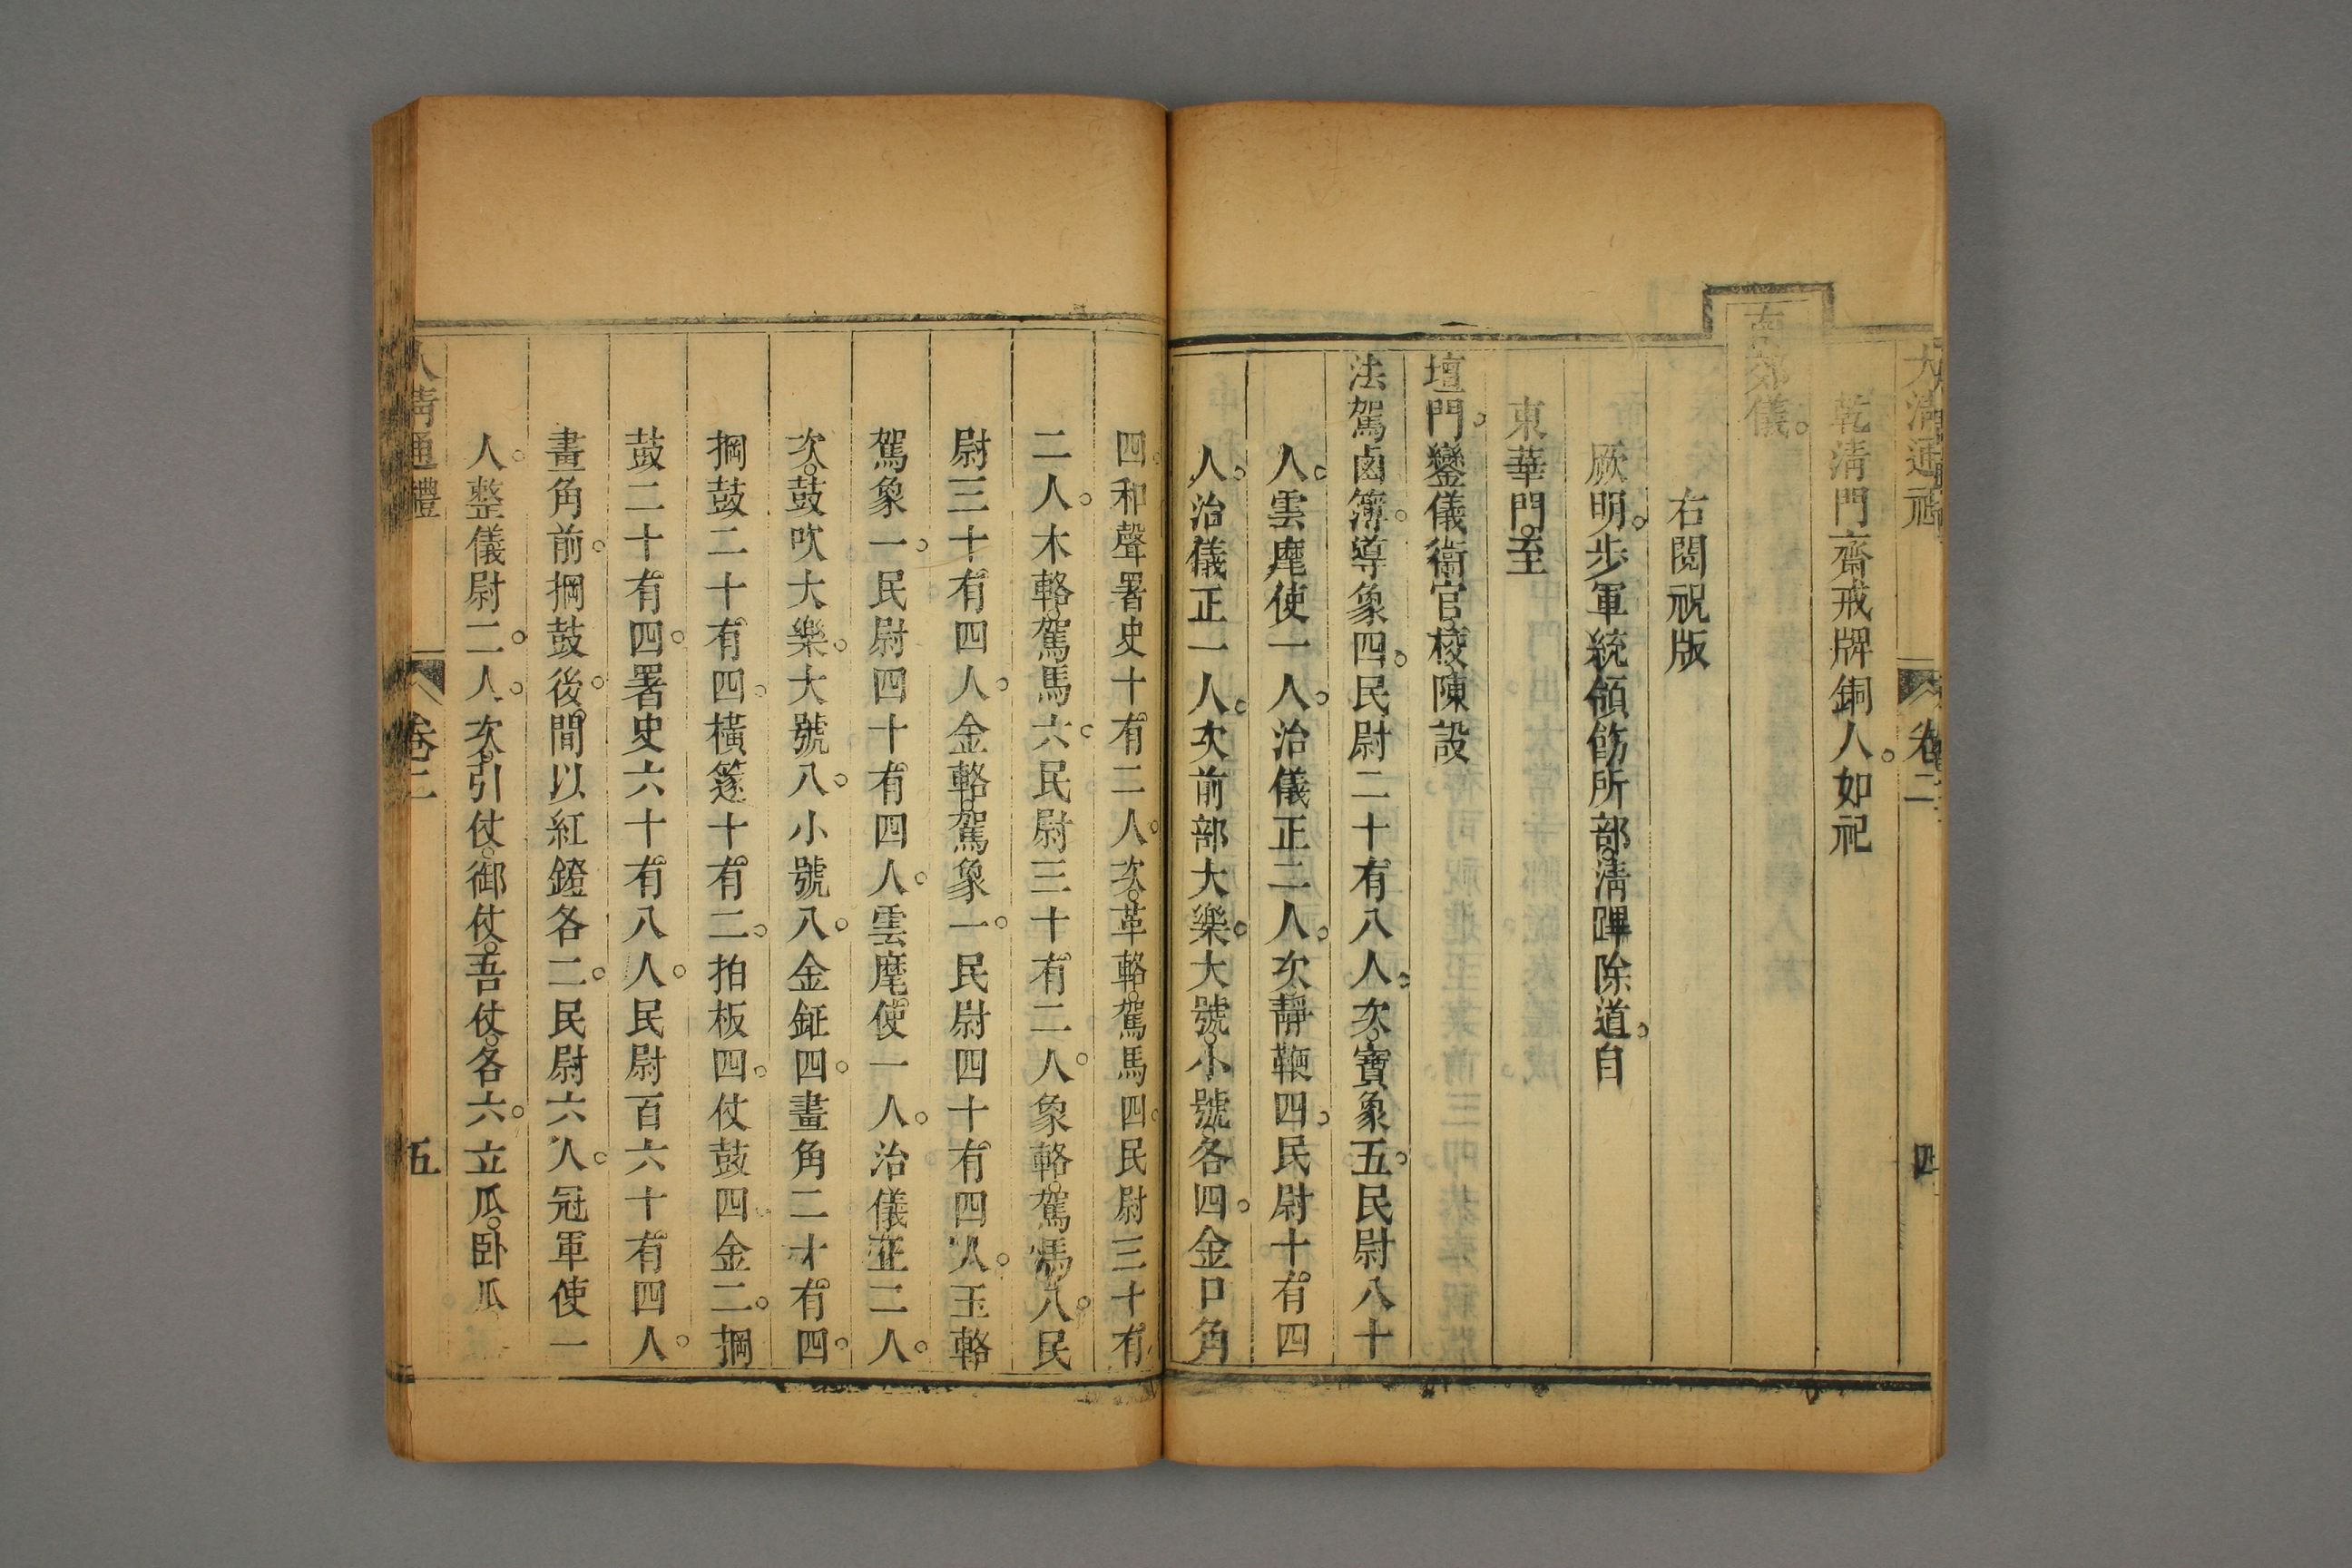 大清通禮 卷二 四
乾清門齋戒牌銅人。如祀
南郊儀。
右閱祝版
厥明。步軍統領飭所部。清蹕除道。自
東華門。至
壇門。鑾儀衞官。校陳設
法駕鹵簿。導象四。民尉二十有八人。次。寶象五。民尉八十
人。雲麾使一人。治儀正二人。次靜鞭四。民尉十有四
人。治儀正一人。次前部大樂。大號。小號各四。金口角
四。和聲署史十有二人。次。革輅。駕馬四。民尉三十有
二人。木輅。駕馬六。民尉三十有二人。象輅。駕馬八。民
尉三十有四人。金輅。駕象一。民尉四十有四人。玉輅
駕象一。民尉四十有四人。雲麾使一人。治儀正二人。
次。鼓吹大樂。大號八。小號八。金鉦四。畫角二十有四。
掆鼓二十有四。橫篴十有二。拍板四。仗鼓四。金二。掆
鼓二十有四。署史六十有八人。民尉百六十有四人。
畫角前。掆鼓後。間以紅鐙各二。民尉六人。冠軍使一
人。整儀尉二人。次。引仗。御仗。吾仗。各六。立瓜。臥瓜
大清通禮 卷二 五